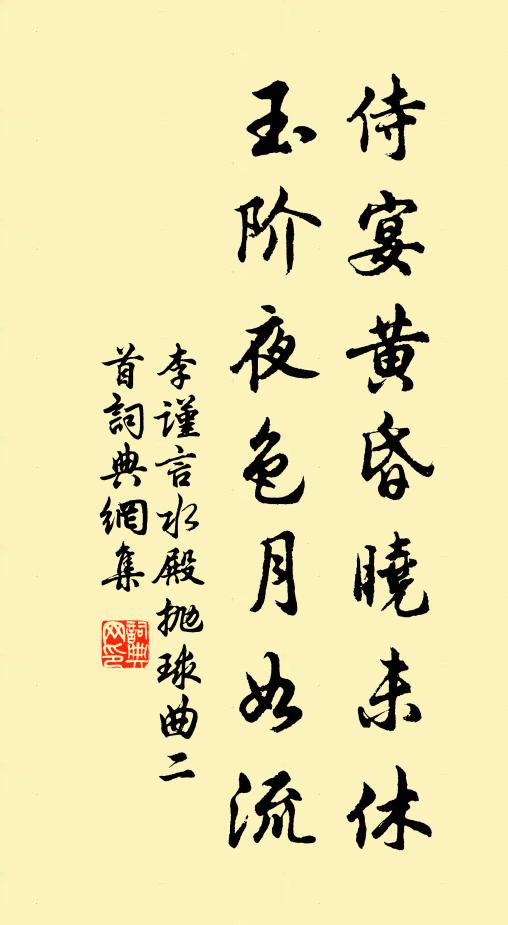 侍宴黄昏曉未休
玉阶夜色月如流
李謹言水殿抛球曲二
首詞典網集
詞典網印